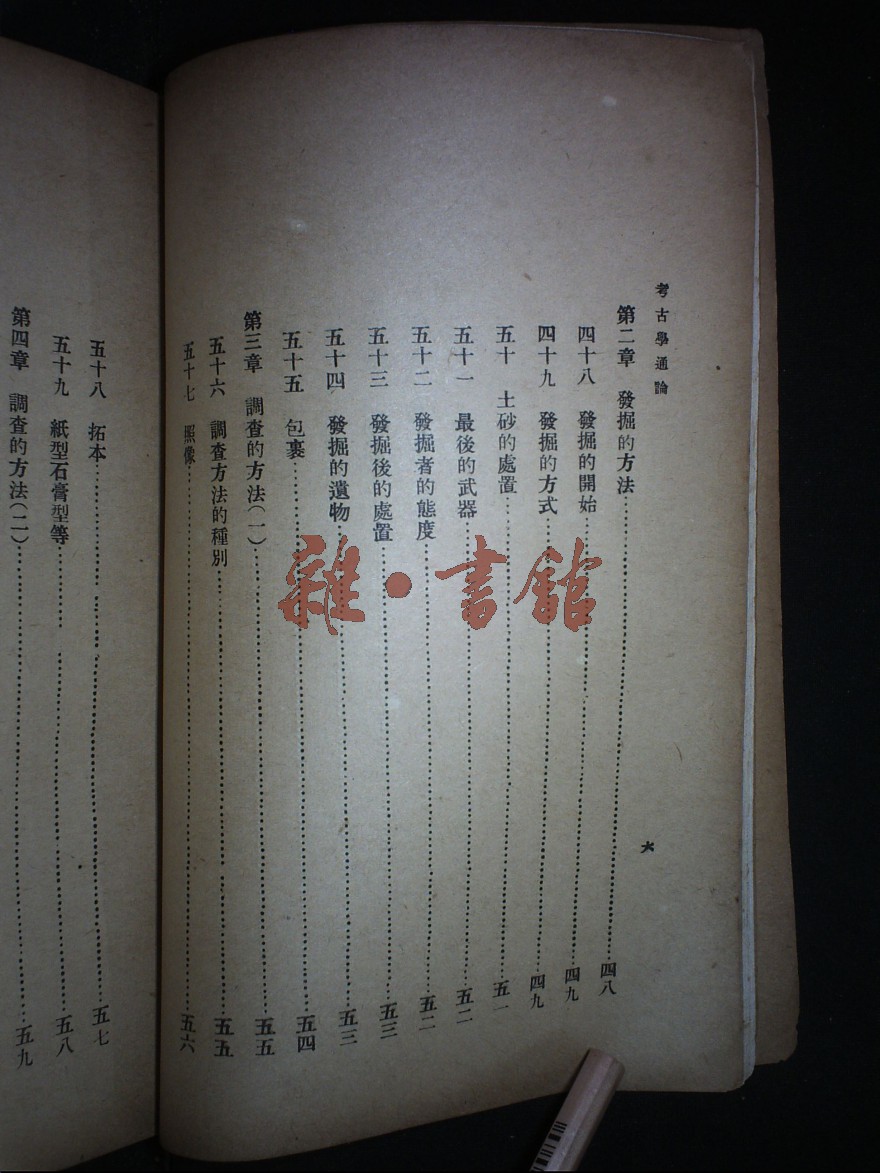 考古學通論
六
第二章 發掘的方法……四八
四十八 發掘的開始……四九
四十九 發掘的方式……四九
五十 土砂的處置……五一
五十一 最後的武器……五二
五十二 發掘者的態度……五二
五十三 發掘後的處置……五三
五十四 發掘的遺物……五三
五十五 包裹……五四
第三章 調查的方法(一)……五五
五十六 調查方法的種別……五五
五十七 照像……五六
五十八 拓本……五七
五十九 紙型石膏型等……五八
第四章 調查的方法(二)……五九
雜·書館